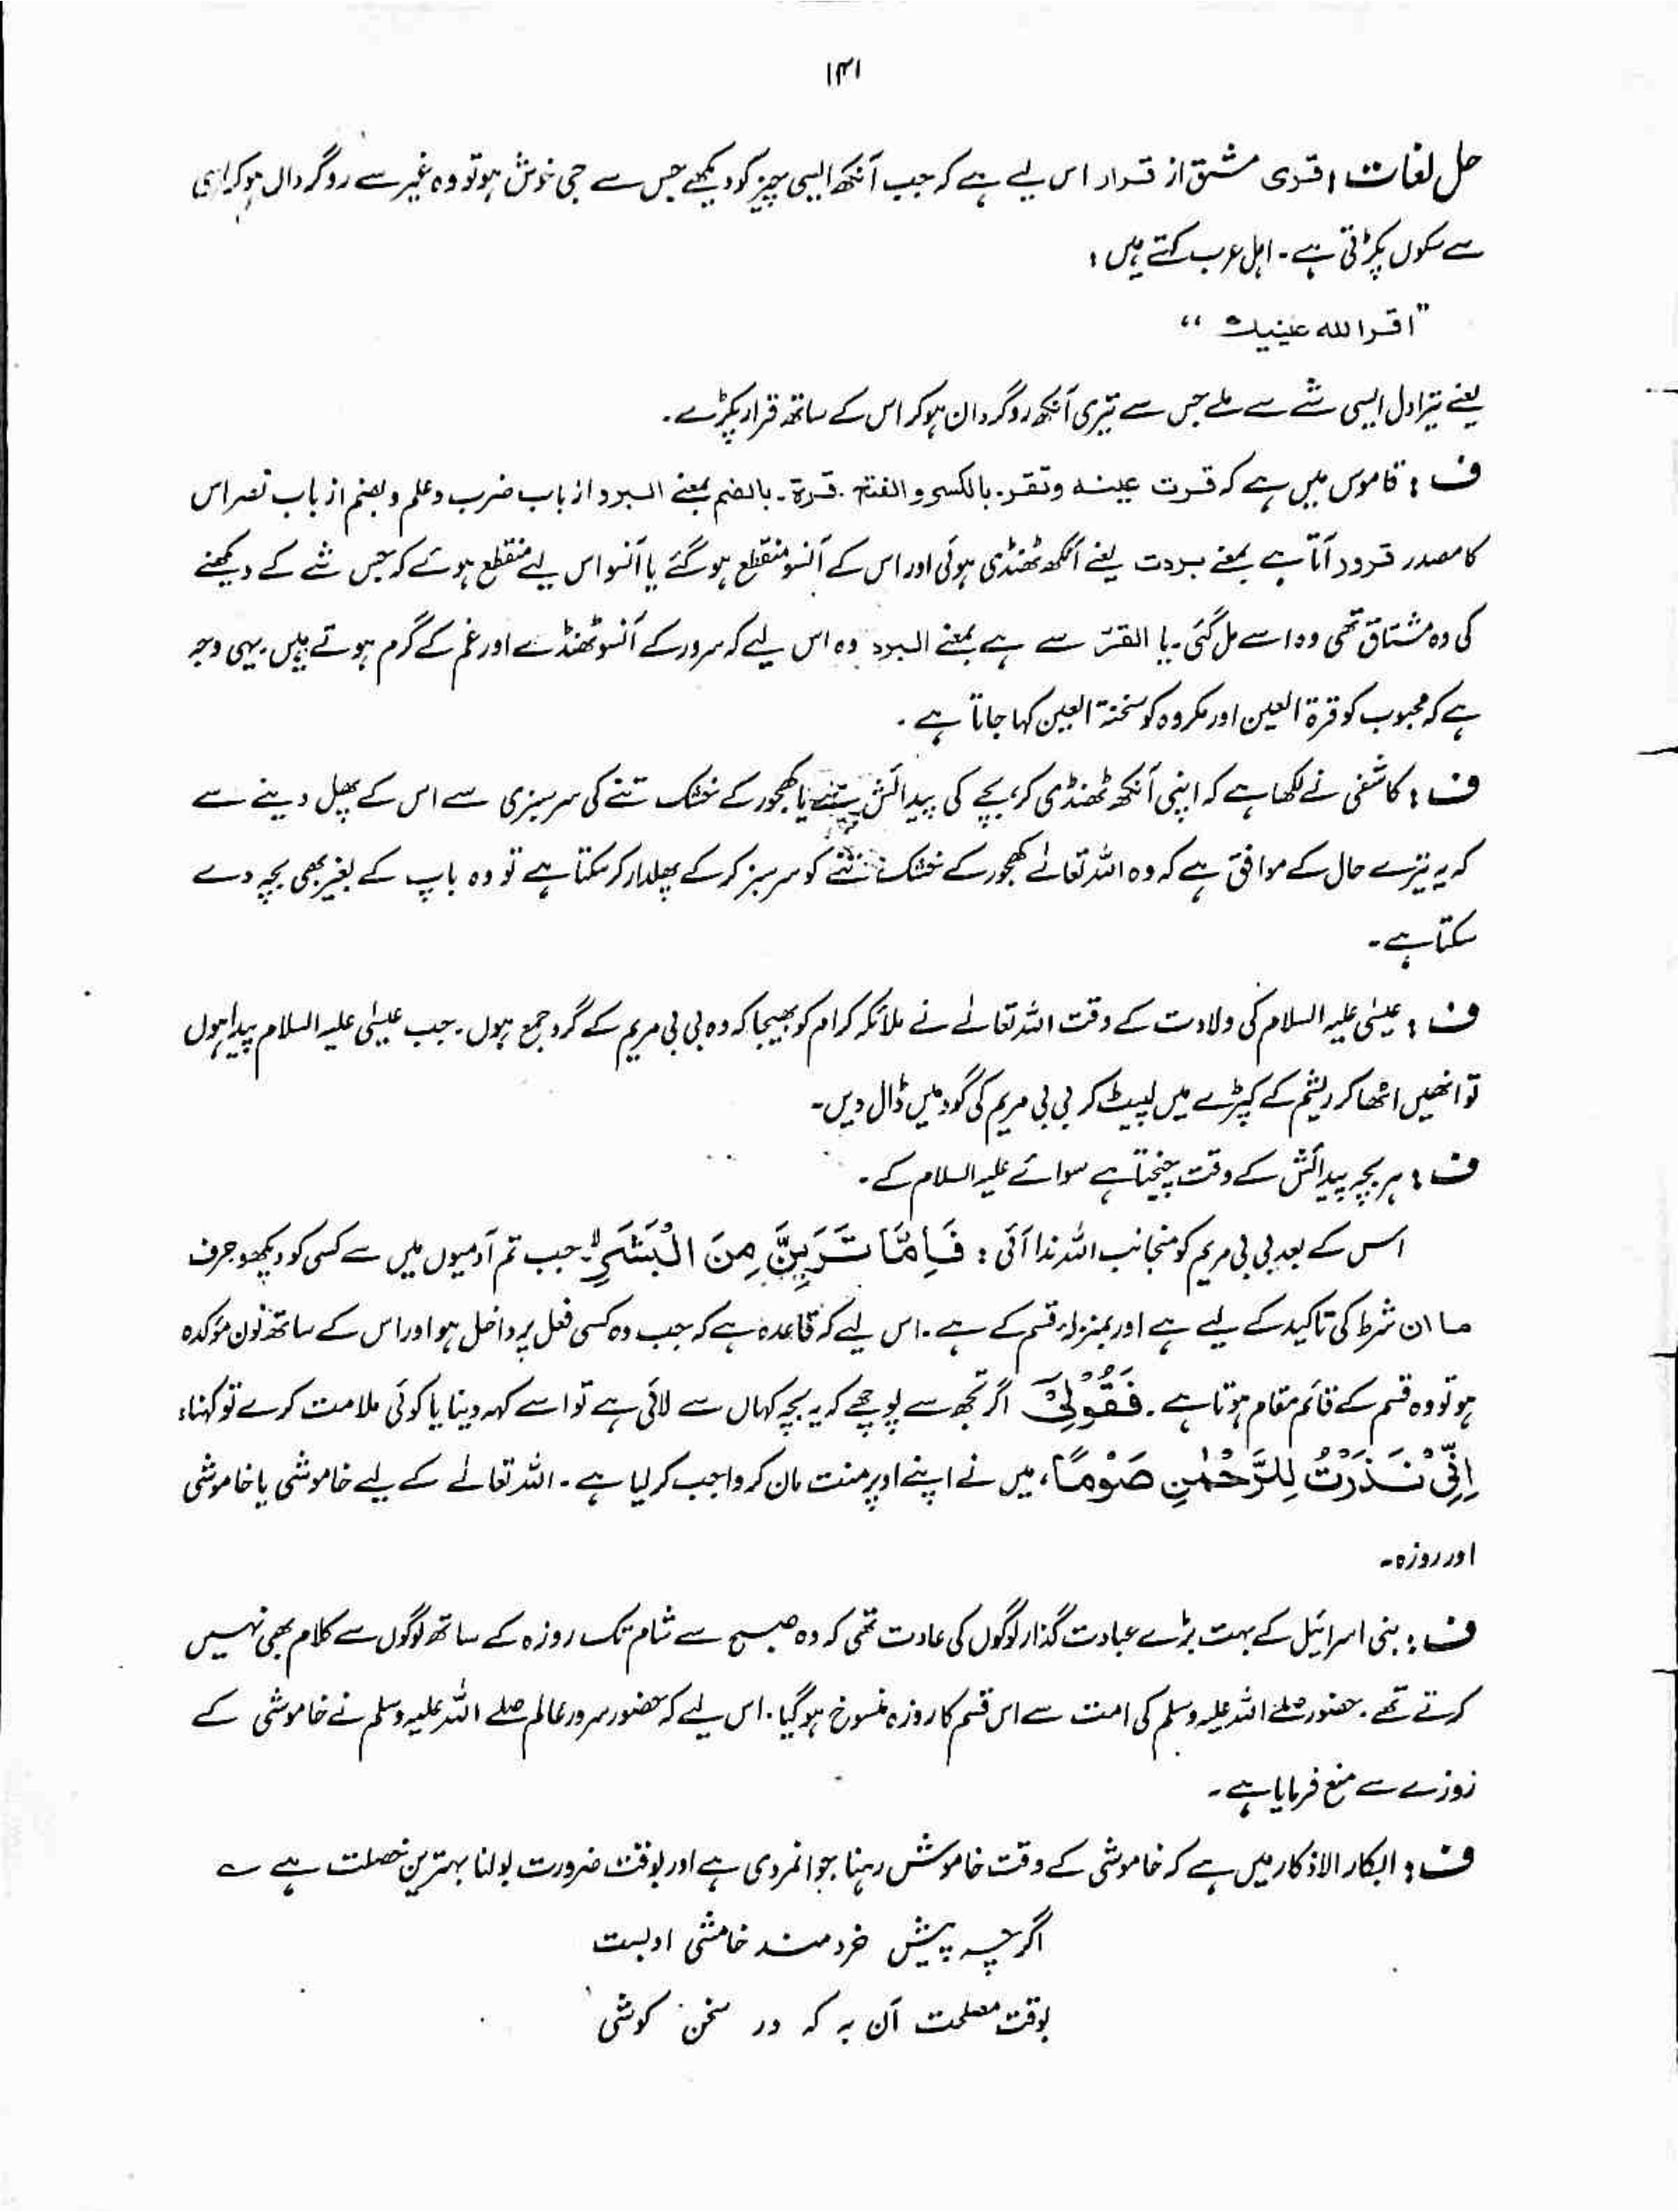 ۱۴۱
حل لغات : قری مشتق از قرار اس لیے ہے کہ جب آنکھ ایسی چیز کو دیکھے جس سے جی خوش ہو تو وہ غیر سے روگرداں ہو کر اسی
سے سکوں پکڑتی ہے۔ اہل عرب کہتے ہیں :
"اقرا لله عینیك"
یعنے تیرا دل ایسی شے سے ملے جس سے تیری آنکھ روگردان ہو کر اس کے ساتھ قرار پکڑے۔
ف : قاموس میں ہے کہ قرت عینه وتقر۔ بالکسر و الفتح۔ قرۃ۔ بالضم بمعنے البرد از باب ضرب و علم و بضم از باب نصر اس
کا مصدر قرور آتا ہے بمعنے بردت یعنے آنکھ ٹھنڈی ہوئی اور اس کے آنسو منقطع ہو گئے یا آنسو اس لیے منقطع ہوئے کہ جس شے کے دیکھنے
کی وہ مشتاق تھی وہ اسے مل گئی۔ یا القر سے ہے بمعنے البرد وہ اس لیے کہ سرور کے آنسو ٹھنڈے اور غم کے گرم ہوتے ہیں۔ یہی وجہ
ہے کہ محبوب کو قرۃ العین اور مکروہ کو سخنۃ العین کہا جاتا ہے۔
ف : کاشفی نے لکھا ہے کہ اپنی آنکھ ٹھنڈی کر، بچے کی پیدائش سے یا کھجور کے خشک تنے کی سرسبزی سے اس کے پھل دینے سے
کہ یہ تیرے حال کے موافق ہے کہ وہ اللہ تعالےٰ کھجور کے خشک تنے کو سرسبز کر کے پھلدار کر سکتا ہے تو وہ باپ کے بغیر بھی بچہ دے
سکتا ہے۔
ف : عیسٰی علیہ السلام کی ولادت کے وقت اللہ تعالےٰ نے ملائکہ کرام کو بھیجا کہ وہ بی بی مریم کے گرد جمع ہوں۔ جب عیسٰی علیہ السلام پیدا ہوں
تو انھیں اٹھا کر ریشم کے کپڑے میں لپیٹ کر بی بی مریم کی گود میں ڈال دیں۔
ف : ہر بچہ پیدائش کے وقت چیختا ہے سوائے علیہ السلام کے۔
اس کے بعد بی بی مریم کو منجانب اللہ ندا آئی : فَاِمَّا تَرَيِنَّ مِنَ الْبَشَرِ لا۔ جب تم آدمیوں میں سے کسی کو دیکھو حرف
ما ان شرط کی تاکید کے لیے ہے اور بمنزلہ قسم کے ہے۔ اس لیے کہ قاعدہ ہے کہ جب وہ کسی فعل پر داخل ہو اور اس کے ساتھ نون مؤکدہ
ہو تو وہ قسم کے قائم مقام ہوتا ہے۔ فَقُوْلِیْۤ اگر تجھ سے پوچھے کہ یہ بچہ کہاں سے لائی ہے تو اسے کہہ دینا یا کوئی ملامت کرے تو کہنا،
اِنِّیْ نَذَرْتُ لِلرَّحْمٰنِ صَوْمًا، میں نے اپنے اوپر منت مان کر واجب کر لیا ہے۔ اللہ تعالےٰ کے لیے خاموشی یا خاموشی
اور روزہ۔
ف : بنی اسرائیل کے بہت بڑے عبادت گذار لوگوں کی عادت تھی کہ وہ صبح سے شام تک روزہ کے ساتھ لوگوں سے کلام بھی نہیں
کرتے تھے۔ حضور صلے اللہ علیہ وسلم کی امت سے اس قسم کا روزہ منسوخ ہو گیا۔ اس لیے کہ حضور سرور عالم صلے اللہ علیہ وسلم نے خاموشی کے
روزے سے منع فرمایا ہے۔
ف : ابکار الاذکار میں ہے کہ خاموشی کے وقت خاموش رہنا جوانمردی ہے اور بوقت ضرورت بولنا بہترین خصلت ہے ؎
اگرچہ پیش خردمند خامشی ادبست
بوقت مصلحت آن بہ کہ در سخن کوشی